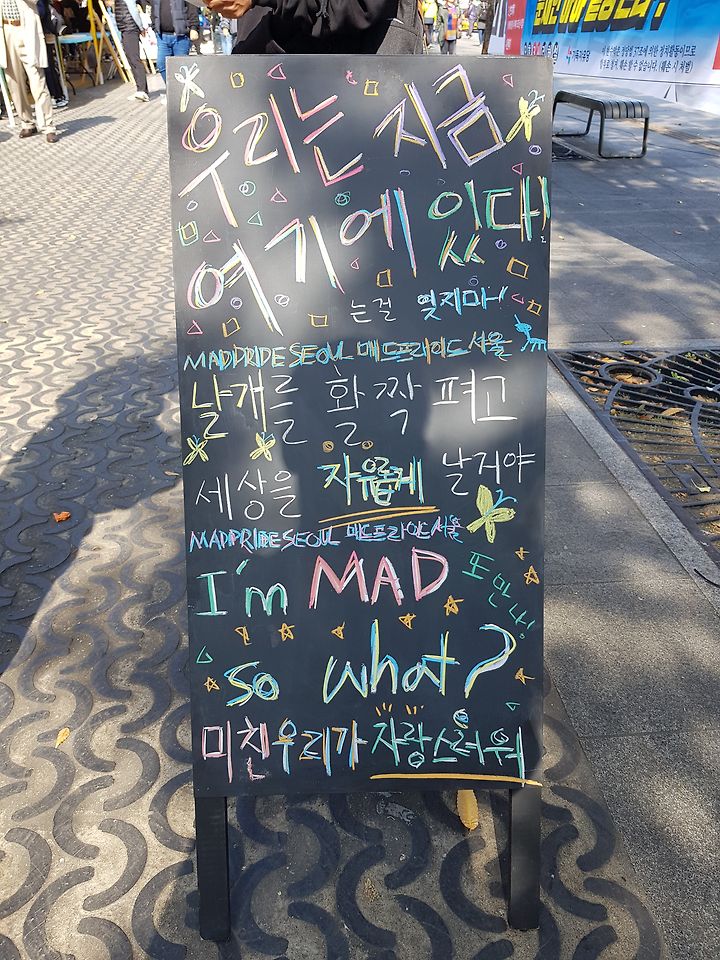 우리는 지금
여기에 있다!
는걸 잊지마~!
MADPRIDE SEOUL 매드프라이드 서울
날개를 활짝 펴고
세상을 자유롭게 날거야
MADPRIDE SEOUL 매드프라이드 서울
I'm MAD
또 만나!
so what?
미친우리가 자랑스러워